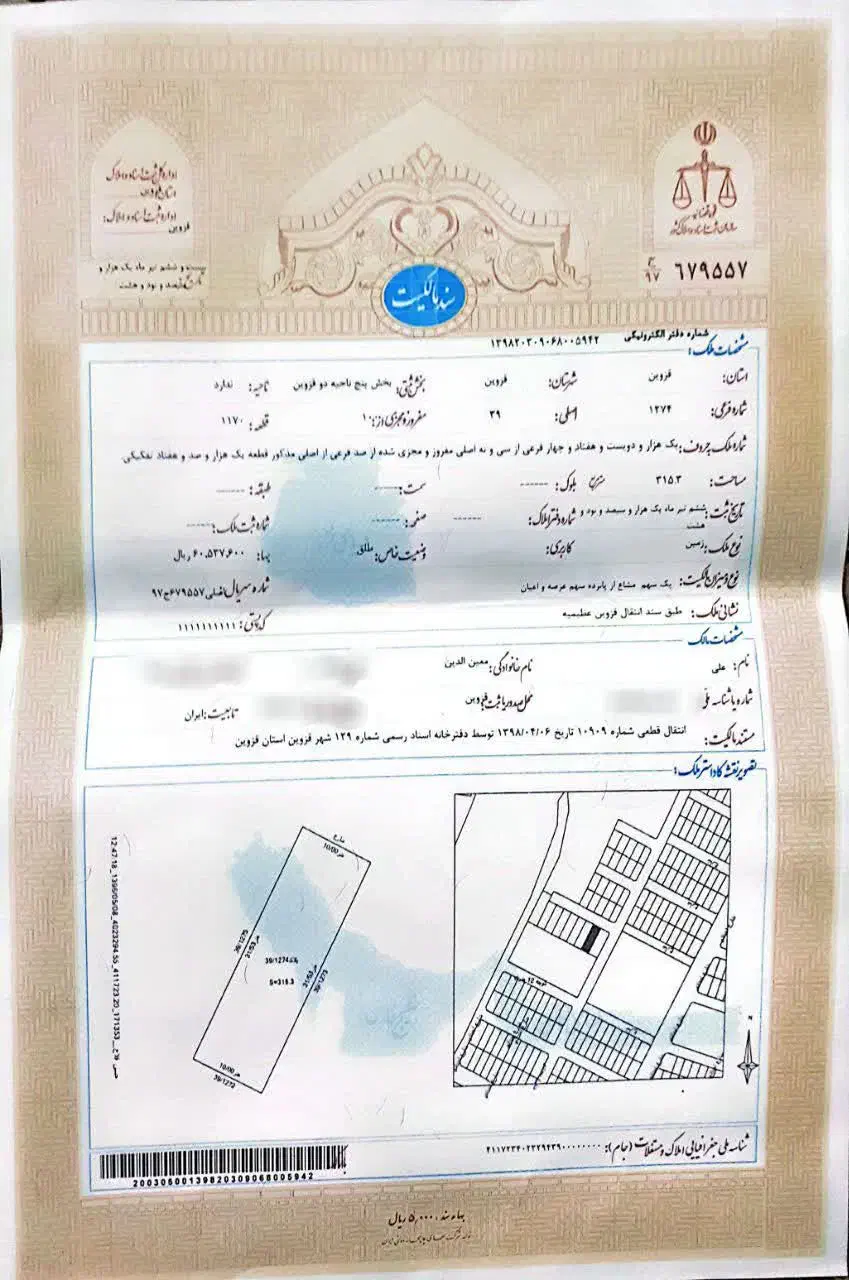 اداره کل ثبت اسناد و املاک
استان قزوین
اداره ثبت اسناد و املاک:
قزوین
بیست و ششم تیر ماه یک هزار و
سیصد و نود و هشت
قوه قضائیه
سازمان ثبت اسناد و املاک کشور
۹۷ ۶۷۹۵۵۷
سند مالکیت
شماره دفتر الکترونیکی ۱۳۹۸۲۰۳۰۹۰۶۸۰۰۵۹۴۲
مشخصات ملک:
استان: قزوین شهرستان: قزوین بخش ثبتی: بخش پنج ناحیه دو قزوین ناحیه: ندارد
شماره فرعی: ۱۲۷۴ اصلی: ۳۹ مفروز و مجزی از: ۱۰ قطعه: ۱۱۷۰
شماره ملک به حروف: یک هزار و دویست و هفتاد و چهار فرعی از سی و نه اصلی مفروز و مجزی شده از صد فرعی از اصلی مذکور قطعه یک هزار و صد و هفتاد تفکیکی
مساحت: ۳۱۵.۳ مترمربع بلوک: ------ سمت: ------ طبقه: ------
تاریخ ثبت: ششم تیر ماه یک هزار و سیصد و نود و هشت شماره دفتر املاک: ------ صفحه: ------ شماره ثبت ملک: ------
نوع ملک: زمین کاربری: وضعیت خاص: طلق بها: ۶۰,۵۳۷,۶۰۰ ریال
نوع و میزان مالکیت: یک سهم مشاع از پانزده سهم عرصه و اعیان شماره سریال اصلی ۶۷۹۵۵۷ج۹۷
نشانی ملک: طبق سند انتقال قزوین عظیمیه کد پستی: ۱۱۱۱۱۱۱۱۱۱
مشخصات مالک
نام: علی نام خانوادگی: معین الدین
شماره یا شناسه ملی محل صدور یا ثبت: قزوین تابعیت: ایران
مستند مالکیت: انتقال قطعی شماره ۱۰۹۰۹ تاریخ ۱۳۹۸/۰۴/۰۶ توسط دفترخانه اسناد رسمی شماره ۱۲۹ شهر قزوین استان قزوین
تصویر نقشه کاداستر ملک:
شارع
10/00 متر
39/1275
31/53 متر
پلاک 39/1274
S=315.3
31/53 متر
39/1273
10/00 متر
39/1272
شناسه ملی جغرافیایی املاک و مستغلات (جام): ۲۱۱۷۲۳۴۰۲۳۲۹۴۳۹۰۰۰۰۰۰۰۰
20030600139820309068005942
بهاء سند: ۵,۰۰۰ ریال